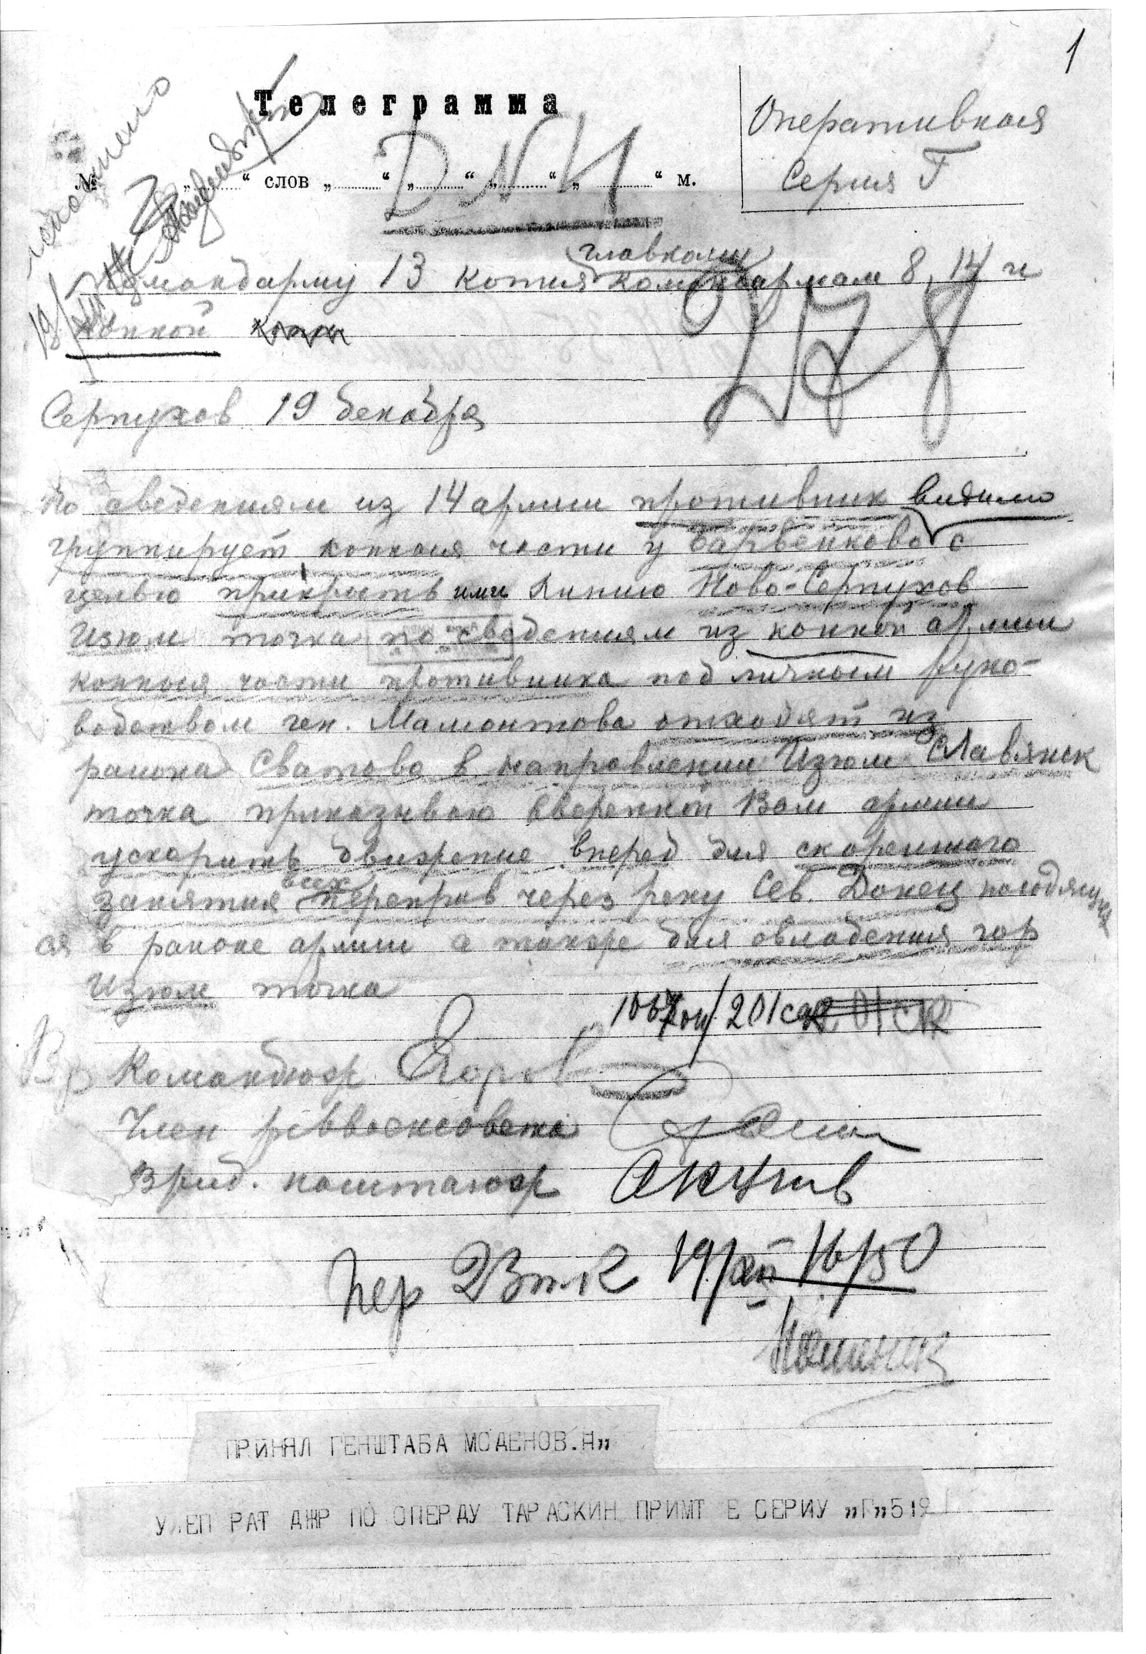 1
Телеграмма
Оперативная
Серия Г
№ „ “ слов „ “ „ “ „ “ „ “ м.
Командарму 13 копия главкому командармам 8, 14 и
Конной
278
Серпухов 19 декабря
По сведениям из 14 армии противник видимо
группирует конные части у Барвенково с
целью прикрыть ими линию Ново-Серпухов
Изюм точка по сведениям из конной армии
конные части противника под личным руко-
водством ген. Мамонтова отходят из
района Сватово в направлении Изюм Славянск
точка приказываю вверенной Вам армии
ускорить движение вперед для скорейшего
занятия всех переправ через реку Сев. Донец находящих
ся в районе армии а также для овладения гор
Изюм точка
Вр Командюж Егоров
Член реввоенсовета
Врид. наштаюж
пер 19/XII 16/50
ПРИНЯЛ ГЕНШТАБА МОДЕНОВ.Я„
РАТ ДЖР ПО ОПЕРДУ ТАРАСКИН ПРИМТ Е СЕРИУ „Г„519